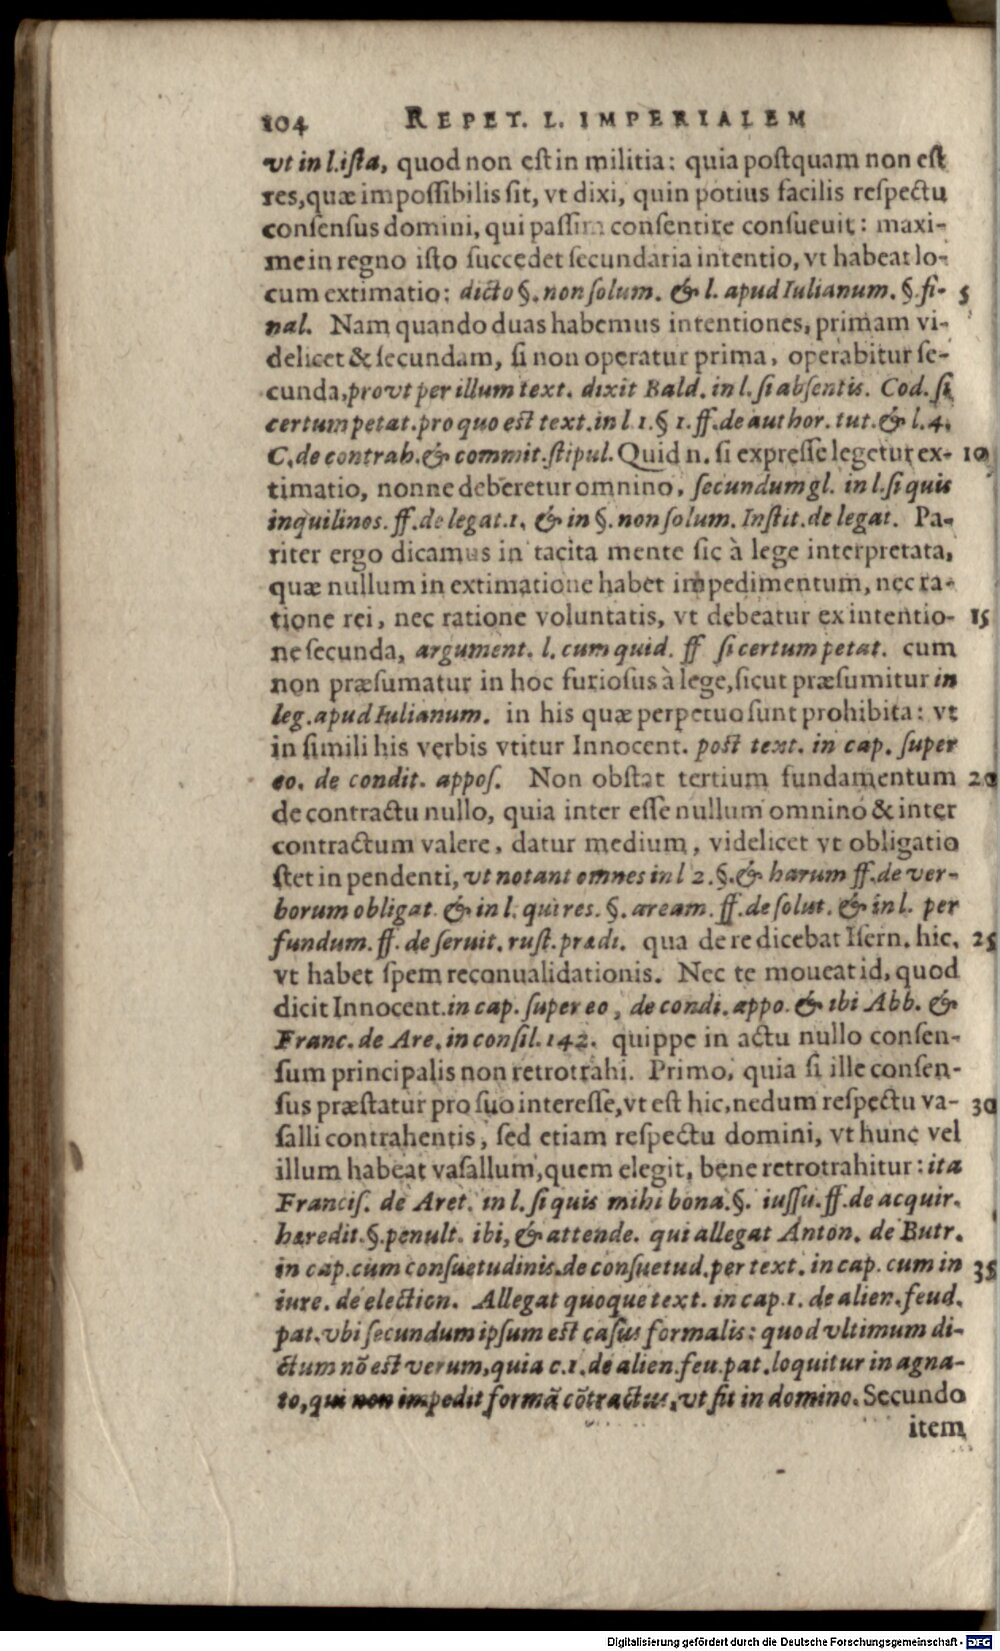 104 REPET. L. IMPERIALEM
vt in l. ista, quod non est in militia: quia postquam non est
res, quæ impossibilis sit, vt dixi, quin potius facilis respectu
consensus domini, qui passim consentire consueuit: maxi-
me in regno isto succedet secundaria intentio, vt habeat lo-
cum extimatio: dicto §. non solum. & l. apud Iulianum. §. fi- 5
nal. Nam quando duas habemus intentiones, primam vi-
delicet & secundam, si non operatur prima, operabitur se-
cunda, prout per illum text. dixit Bald. in l. si absentis. Cod. si
certum petat. pro quo est text. in l. 1. § 1. ff. de author. tut. & l. 4.
C. de contrah. & commit. stipul. Quid n. si expresse legetur ex- 10
timatio, nonne deberetur omnino, secundum gl. in l. si quis
inquilinos. ff. de legat. 1. & in §. non solum. Instit. de legat. Pa-
riter ergo dicamus in tacita mente sic à lege interpretata,
quæ nullum in extimatione habet impedimentum, nec ra-
tione rei, nec ratione voluntatis, vt debeatur ex intentio- 15
ne secunda, argument. l. cum quid. ff si certum petat. cum
non præsumatur in hoc furiosus à lege, sicut præsumitur in
leg. apud Iulianum. in his quæ perpetuo sunt prohibita: vt
in simili his verbis vtitur Innocent. post text. in cap. super
eo. de condit. appos. Non obstat tertium fundamentum 20
de contractu nullo, quia inter esse nullum omnino & inter
contractum valere, datur medium, videlicet vt obligatio
stet in pendenti, vt notant omnes in l 2. §. & harum ff. de ver-
borum obligat. & in l. qui res. §. aream. ff. de solut. & in l. per
fundum. ff. de seruit. rust. prædi. qua de re dicebat Isern. hic, 25
vt habet spem reconualidationis. Nec te moueat id, quod
dicit Innocent. in cap. super eo, de condi. appo. & ibi Abb. &
Franc. de Are. in consil. 142. quippe in actu nullo consen-
sum principalis non retrotrahi. Primo, quia si ille consen-
sus præstatur pro suo interesse, vt est hic, nedum respectu va- 30
salli contrahentis, sed etiam respectu domini, vt hunc vel
illum habeat vasallum, quem elegit, bene retrotrahitur: ita
Francis. de Aret. in l. si quis mihi bona. §. iussu. ff. de acquir.
hæredit. §. penult. ibi, & attende. qui allegat Anton. de Butr.
in cap. cum consuetudinis. de consuetud. per text. in cap. cum in 35
iure. de election. Allegat quoque text. in cap. 1. de alien. feud.
pat. vbi secundum ipsum est casus formalis: quod vltimum di-
ctum nõ est verum, quia c. 1. de alien. feu. pat. loquitur in agna-
to, qui non impedit formã cõtractus, vt fit in domino. Secundo
item
Digitalisierung gefördert durch die Deutsche Forschungsgemeinschaft - DFG